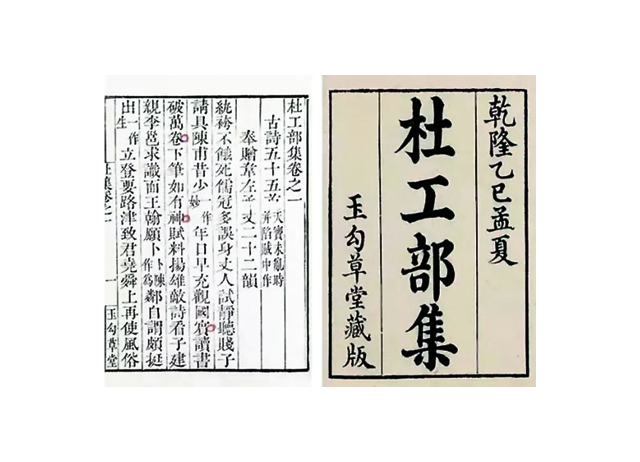 乾隆乙巳孟夏
杜工部集
玉勾草堂藏版
杜工部集卷之一
古詩五十五首
天寶未亂時
并陷賊中作
奉贈韋左丞丈二十二韻
紈袴不餓死儒冠多誤身丈人試靜聽賤子
請具陳甫昔少一作妙年日早充觀國賓讀書
破萬卷下筆如有神賦料揚雄敵詩看子建
親李邕求識面王翰願卜卜陳作為鄰自謂頗挺
出一作生立登要路津致君堯舜上再使風俗
杜集卷之一
一
玉勾草堂